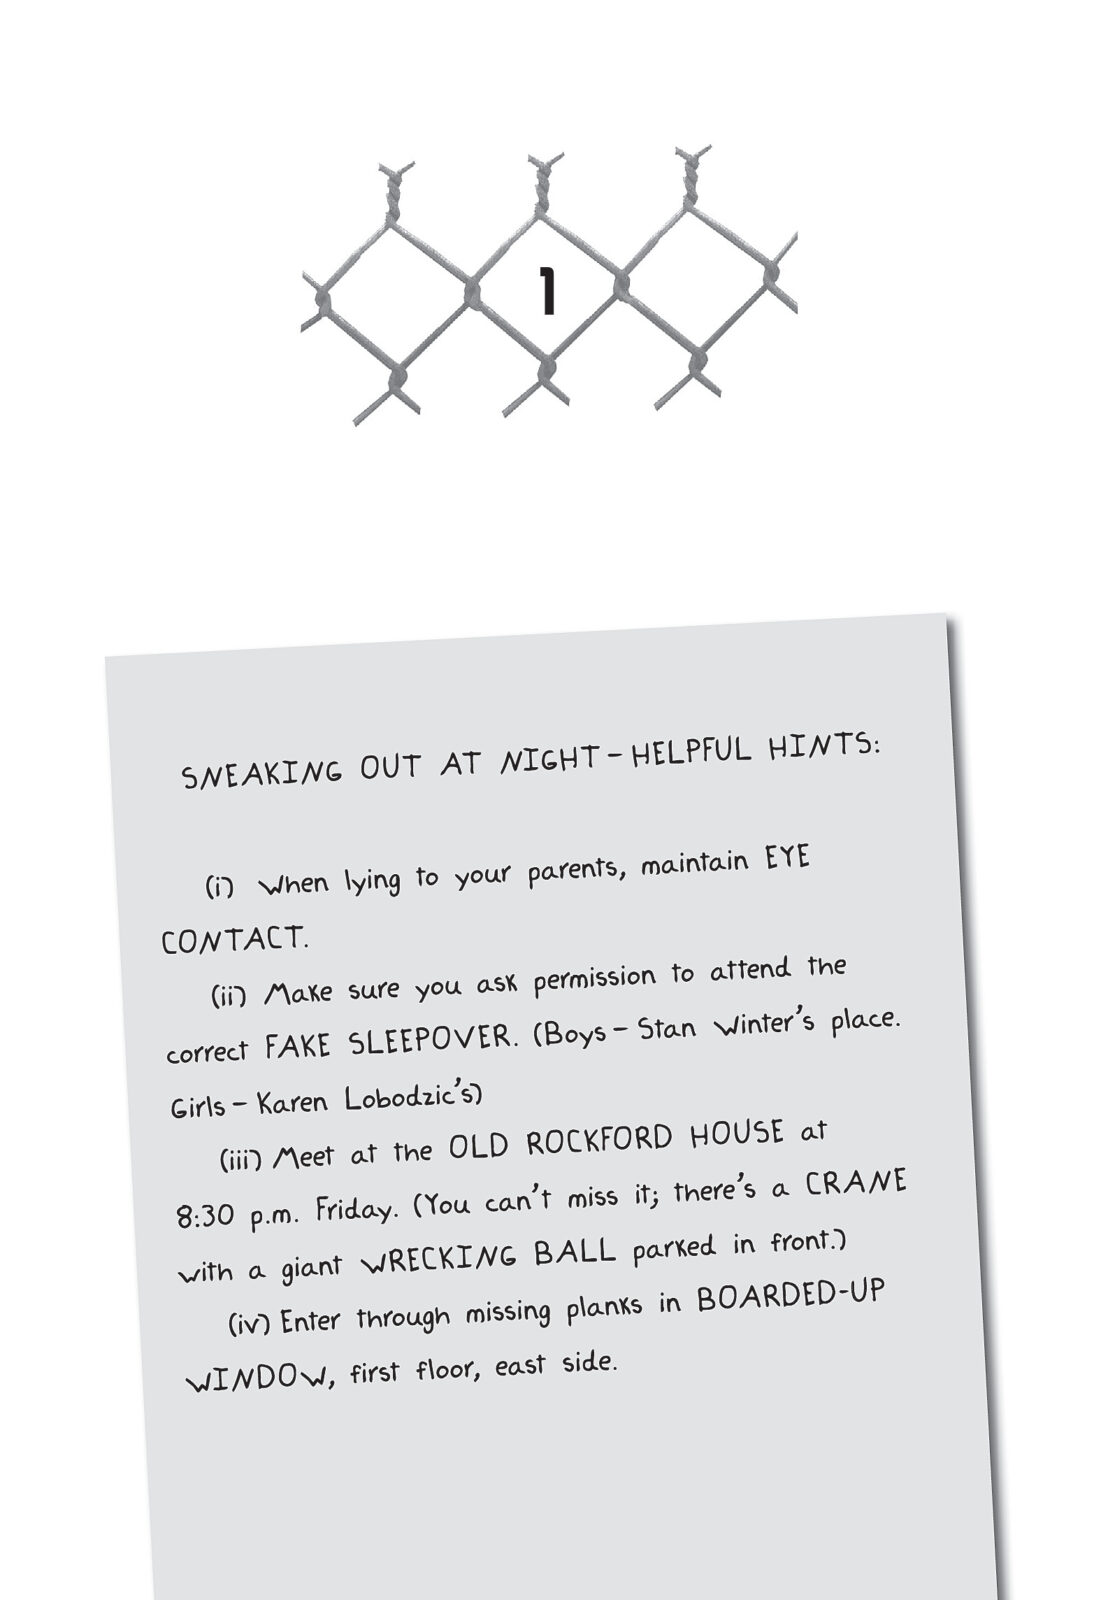 1
SNEAKING OUT AT NIGHT – HELPFUL HINTS:
(i) When lying to your parents, maintain EYE
CONTACT.
(ii) Make sure you ask permission to attend the
correct FAKE SLEEPOVER. (Boys – Stan Winter's place.
Girls – Karen Lobodzic's)
(iii) Meet at the OLD ROCKFORD HOUSE at
8:30 p.m. Friday. (You can't miss it; there's a CRANE
with a giant WRECKING BALL parked in front.)
(iv) Enter through missing planks in BOARDED-UP
WINDOW, first floor, east side.